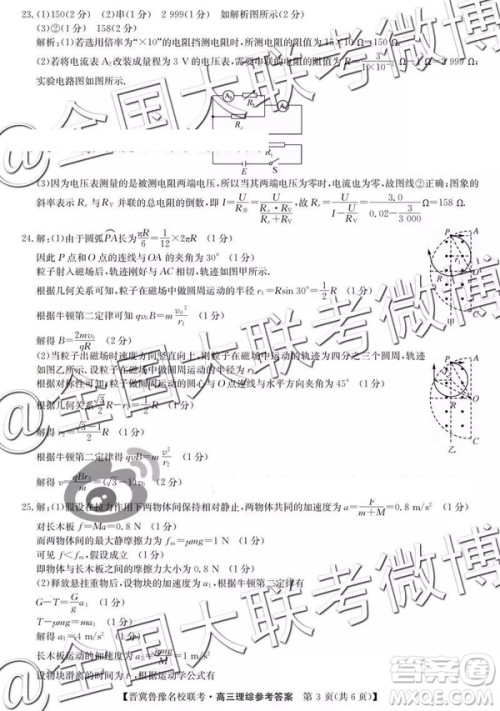 23.(1)150(2分) (2)串(1分) 2 999(1分) 如解析图所示(2分)
(3)②(1分) 158(2分)
解析:(1)若选用倍率为“×10”的电阻挡测电阻时,所示的电阻的阻值为15×10 Ω=150 Ω.
(2)若将电流表 A₂改装成量程为 3 V 的电压表,需要串联的电阻的阻值为 R=3/(1×10)-1 Ω=2 999 Ω.
实验电路图如图.
A₂ R₁
A₁
Rₓ
E S
(3)因为电压表测量的是被测电阻两端电压,所以当其两端电压为零时,电流也为零,故图线②正确;图象的
斜率表示 Rₓ与 R_V并联的总电阻的倒数,即 I=U/R并=U/(Rₓ·R_V/(Rₓ+R_V)),故 Rₓ=U/(I-U/R_V)=3.0/(0.02-3/3 000) Ω=158 Ω.
24.解:(1)由于圆弧PA长为πR/6=1/12×2πR (1分)
因此 P 点和 O 点的连线与 OA 的夹角为 30° (1分)
粒子射入磁场后,轨迹刚好与 AC 相切,轨迹如图甲所示.
根据几何关系可知,粒子在磁场中做圆周运动的半径 r₁=Rsin 30°=1/2R (1分)
根据牛顿第二定律可知 qv₀B=mv₀²/r₁ (1分)
解得 B=2mv₀/qR (2分)
(2)当粒子出磁场时速度方向竖直向上,则粒子在磁场中做圆周运动的轨迹为四分之三个圆,轨迹
如图乙所示.设粒子在磁场中做圆周运动的半径为 r₂
根据对称性可知,粒子做圆周运动的圆心与 O 点连线与水平方向夹角为 45° (1分)
根据几何关系 √3/2R-r₂=1/2R (1分)
解得 r₂=(√3-1)/2R (1分)
根据牛顿第二定律得 qvB=mv²/r₂ (1分)
解得 v=qBr₂/m=(√3-1)v₀ (1分)
P A
甲
P A
C
乙
25.解:(1)假设在拉力作用下两物体间保持相对静止,两物体共同的加速度为 a=F/(m+M)=0.8 m/s² (1分)
对长木板 f=Ma=0.8 N (1分)
两物体间的最大静摩擦力为 fₘ=μmg=1 N (1分)
可见 f<fₘ,假设成立 (1分)
即物体与长木板之间的摩擦力大小为 0.8 N (1分)
(2)释放悬挂重物后,设物块的加速度为 a₁,根据牛顿第二定律有
G-T=G/g a₁ (1分)
T-μmg=ma₁ (1分)
解得 a₁=4 m/s² (1分)
长木板运动的加速度
设物块滑离
【晋冀鲁豫名校联考·高三理综参考答案 第 3 页(共 6 页)】
全国大联考微博
全国大联考微博